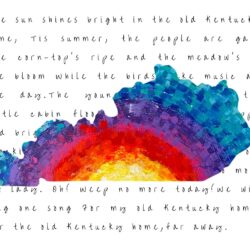 e sun shines bright in the old Kentuck
me, Tis summer, the people are ga
e corn-top's ripe and the meadow's
e bloom while the birds ke music a
e day. The youn
ttle cabin floo
d bri
k
g
lady. Oh! weep no more today! we wi
ng one song for my old Kentucky hom
r the old Kentucky home, far away.